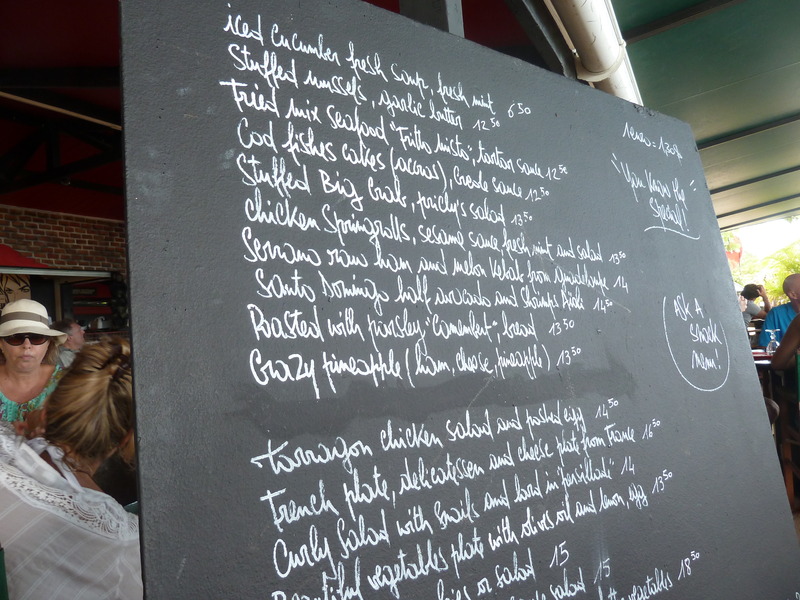 iced cucumber fresh soup, fresh mint 6 50
Stuffed mussels, garlic butter 12 50
Fried mix seafood "Fritto misto", tartar sauce 12 50
Cod fishes cakes (accras), creole sauce 12 50
Stuffed Big Crab, prickly's salad 13 50
Chicken Springrolls, sesame sauce, fresh mint and salad 13 50
Serrano raw ham and melon Kebab from Guadeloupe 14
Santo Domingo half avocado and Shrimps 14 50
Roasted with parsley, "Camembert", bread 13 50
Crazy pineapple (ham, cheese, pineapple) 13 50
Tarragon chicken salad and poached egg 14 50
French plate, delicatessen and cheese plate from France 16 50
Curly Salad with Snails and lard in "persillade" 14
Beautiful vegetables plate with olives oil and lemon, egg 13 50
or salad 15
salad 15
vegetables 18 50
1 euro = 1,30$
"You Know the
Special!"
ASK A
Snack
Menu!